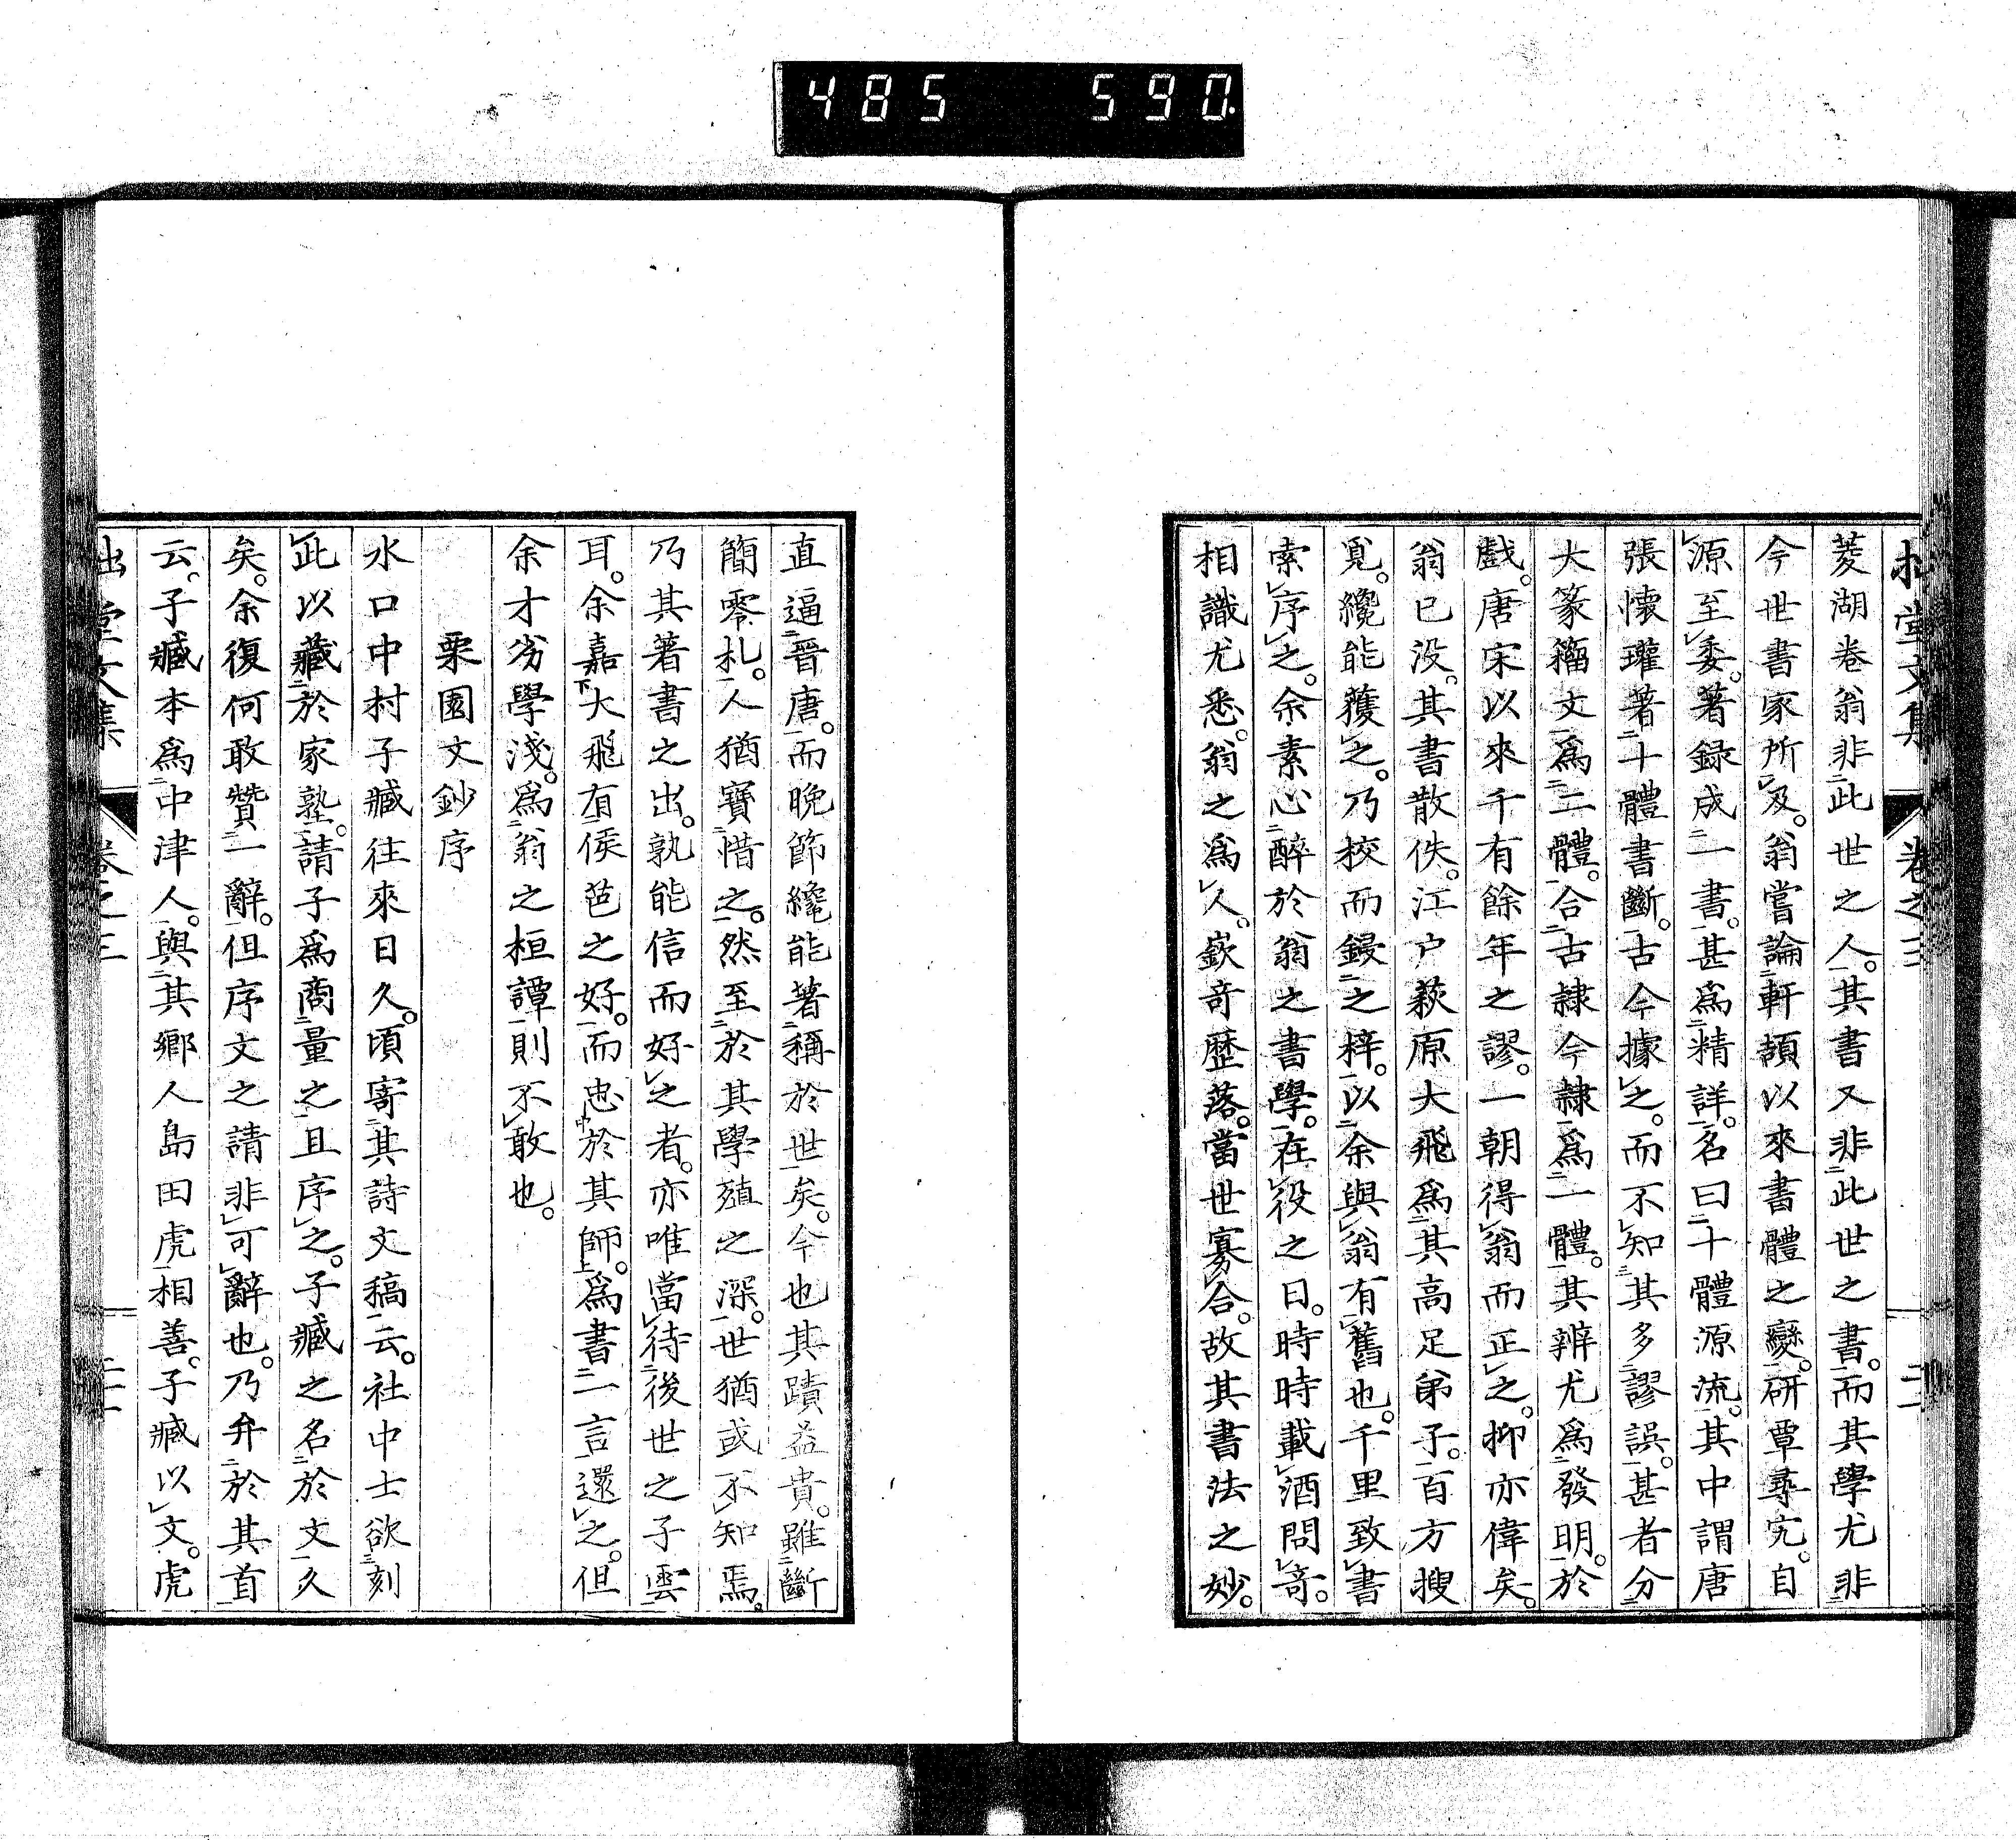 485 590
菱湖卷翁非此世之人。其書又非此世之書。而其學尤非
今世書家所及。翁嘗論軒頡以來書體之變。研覃尋究。自
源至委。著録成一書。甚爲精詳。名曰十體源流。其中謂唐
張懷瓘著十體書斷。古今據之。而不知其多謬誤。甚者分
大篆籀文爲二體。合古隷今隷爲一體。其辨尤爲發明。於
戲。唐宋以來千有餘年之謬。一朝得翁而正之。抑亦偉矣。
翁已没。其書散佚。江户萩原大飛爲其高足弟子。百方搜
覓。纔能獲之。乃校而鋟之梓。以余與翁有舊也。千里致書
索序之。余素心醉於翁之書學。在役之日。時時載酒問奇。
相識尤悉。翁之爲人。嶔奇歴落。當世寡合。故其書法之妙。
直逼晉唐。而晩節纔能著稱於世矣。今也其蹟益貴。雖斷
簡零札。人猶寶惜之。然至於其學殖之深。世猶或不知焉。
乃其著書之出。孰能信而好之者。亦唯當待後世之子雲
耳。余嘉大飛有侯芭之好。而忠於其師。爲書一言還之。但
余才劣學淺。爲翁之桓譚則不敢也。
栗園文鈔序
水口中村子臧往來日久。頃寄其詩文稿云。社中士欲刻
此以藏於家塾。請子爲商量之且序之。子臧之名於文久
矣。余復何敢贊一辭。但序文之請非可辭也。乃弁於其首
云。子臧本爲中津人。與其郷人島田虎相善。子臧以文。虎
堂文集 卷之三